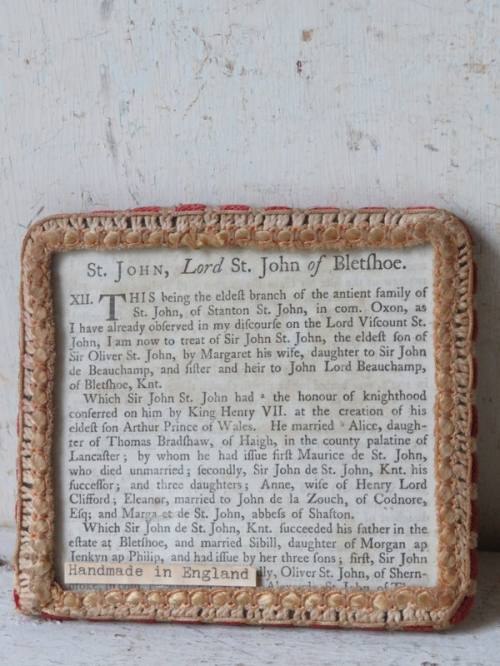 St. JOHN, Lord St. John of Bletſhoe.
XII. THIS being the eldeſt branch of the antient family of
St. John, of Stanton St. John, in com. Oxon, as
I have already obſerved in my diſcourſe on the Lord Viſcount St.
John, I am now to treat of Sir John St. John, the eldeſt ſon of
Sir Oliver St. John, by Margaret his wife, daughter to Sir John
de Beauchamp, and ſiſter and heir to John Lord Beauchamp,
of Bletſhoe, Knt.
Which Sir John St. John had ª the honour of knighthood
conferred on him by King Henry VII. at the creation of his
eldeſt ſon Arthur Prince of Wales. He married Alice, daugh-
ter of Thomas Bradſhaw, of Haigh, in the county palatine of
Lancaſter; by whom he had iſſue firſt Maurice de St. John,
who died unmarried; ſecondly, Sir John de St. John, Knt. his
ſucceſſor; and three daughters; Anne, wife of Henry Lord
Clifford; Eleanor, married to John de la Zouch, of Codnore,
Eſq; and Margaret de St. John, abbeſs of Shafton.
Which Sir John de St. John, Knt. ſucceeded his father in the
eſtate at Bletſhoe, and married Sibill, daughter of Morgan ap
Jenkyn ap Philip, and had iſſue by her three ſons; firſt, Sir John
lly, Oliver St. John, of Shern-
Handmade in England